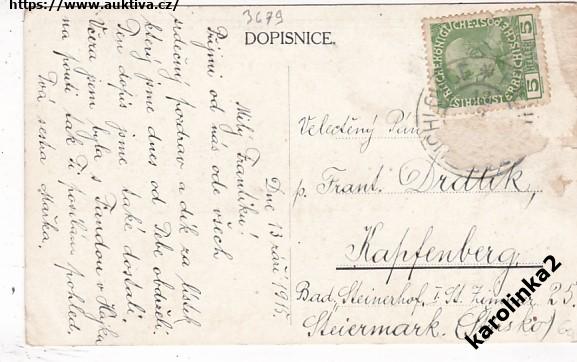 https://www.auktiva.cz/
3679
DOPISNICE.
Dne 13 září 1915.
Milý Františku!
Přijmi od nás ode všech
srdečný pozdrav a dík za lístek
který jsme dnes od Tebe obdrželi.
Ten dopis jsme také dostali.
Včera jsem byla s Fandou v
na pouti tak Ti posílám pohled.
Tvá sestra Mařka.
KAIS. KÖNIGLICHE ÖSTERR. POST
5 HELLER 5
Velectěný Pán
p. Frant. Drdlík,
Kapfenberg,
Bad. Steinerhof. I St. Zimmer 25.
Steiermark.
karolinka2